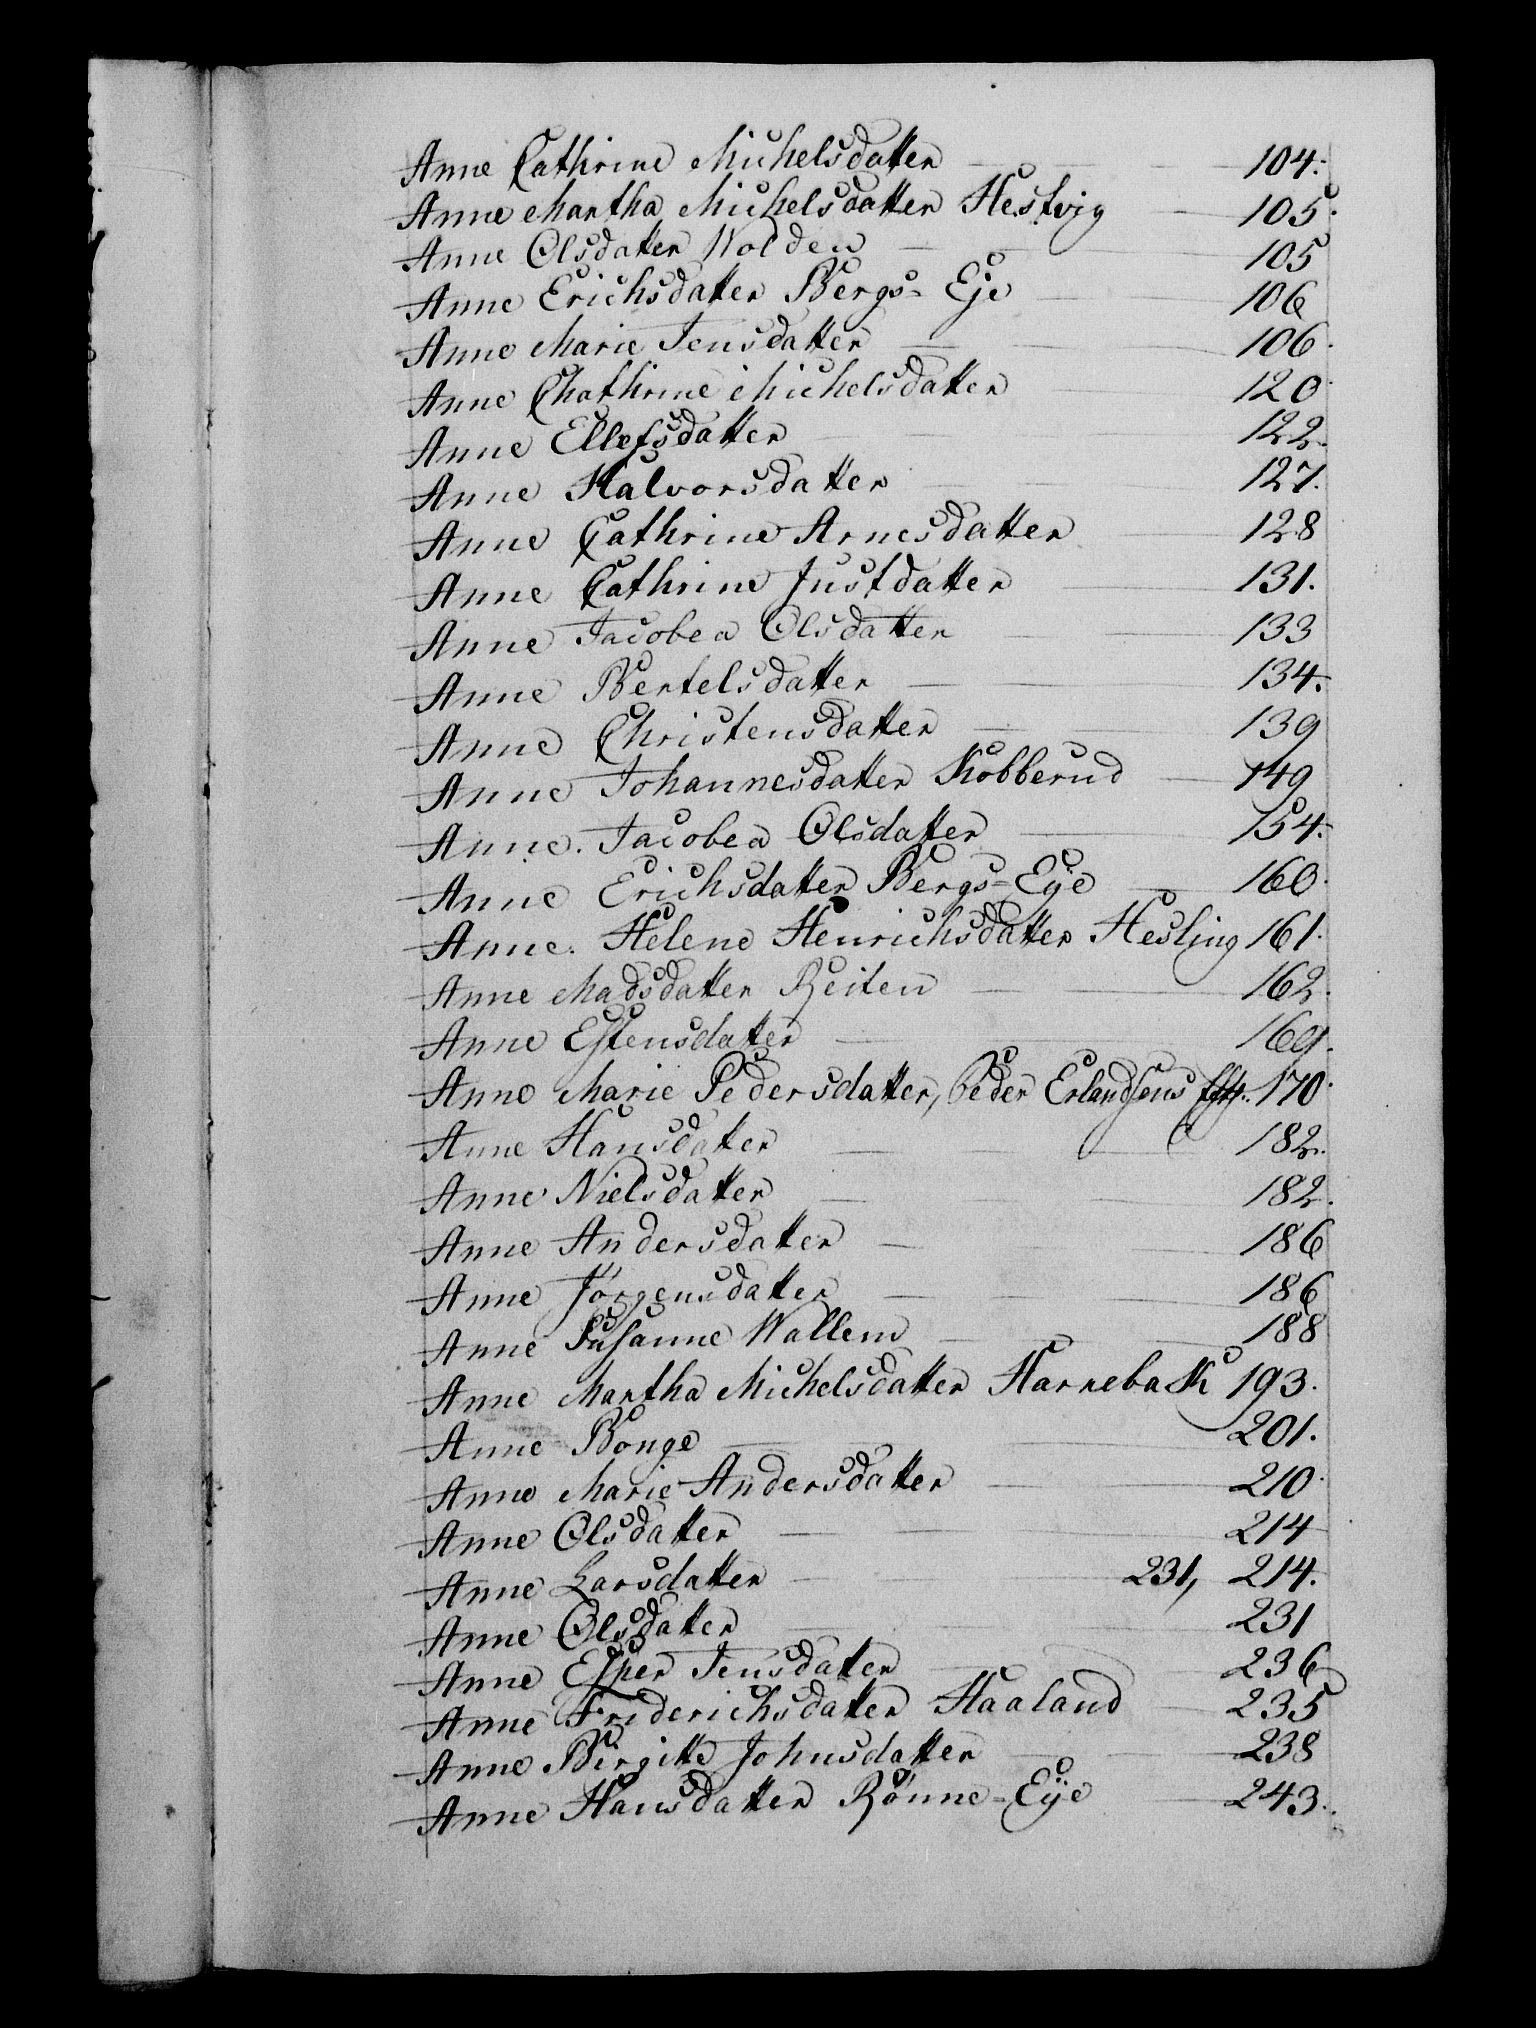 Anne Cathrine Michelsdatter 104.
Anne Martha Michelsdatter Hestvig 105.
Anne Olsdatter Wolden 105
Anne Erichsdatter Bergs-Eje 106
Anne Marie Jensdatter 106.
Anne Chathrine Michelsdatter 120.
Anne Ellefsdatter 122.
Anne Halvorsdatter 127.
Anne Cathrine Arnesdatter 128
Anne Cathrine Justdatter 131.
Anne Jacobea Olsdatter 133
Anne Bertelsdatter 134.
Anne Christensdatter 139
Anne Johannesdatter Kobberud 149
Anne. Jacobea Olsdatter 154.
Anne Erichsdatter Bergs-Eÿe 160.
Anne. Helene Henrichsdatter Hesling 161.
Anne Madsdatter Reiten 162.
Anne Estensdatter 169.
Anne Marie Pedersdatter, Peder Erlandsens 170.
Anne Hansdatter 182.
Anne Nielsdatter 182.
Anne Andersdatter 186
Anne Jörgensdatter 186
Anne Susanne Wallem 188
Anne Martha Michelsdatter Harreback 193.
Anne Bonge 201.
Anne Marie Andersdatter 210.
Anne Olsdatter 214
Anne Larsdatter 231, 214.
Anne Olsdatter 231
Anne Esper Jensdatter 236
Anne Friderichsdatter Haaland 235
Anne Birgitte Johnsdatter 238
Anne Hansdatter Rönne-Eÿe 243.